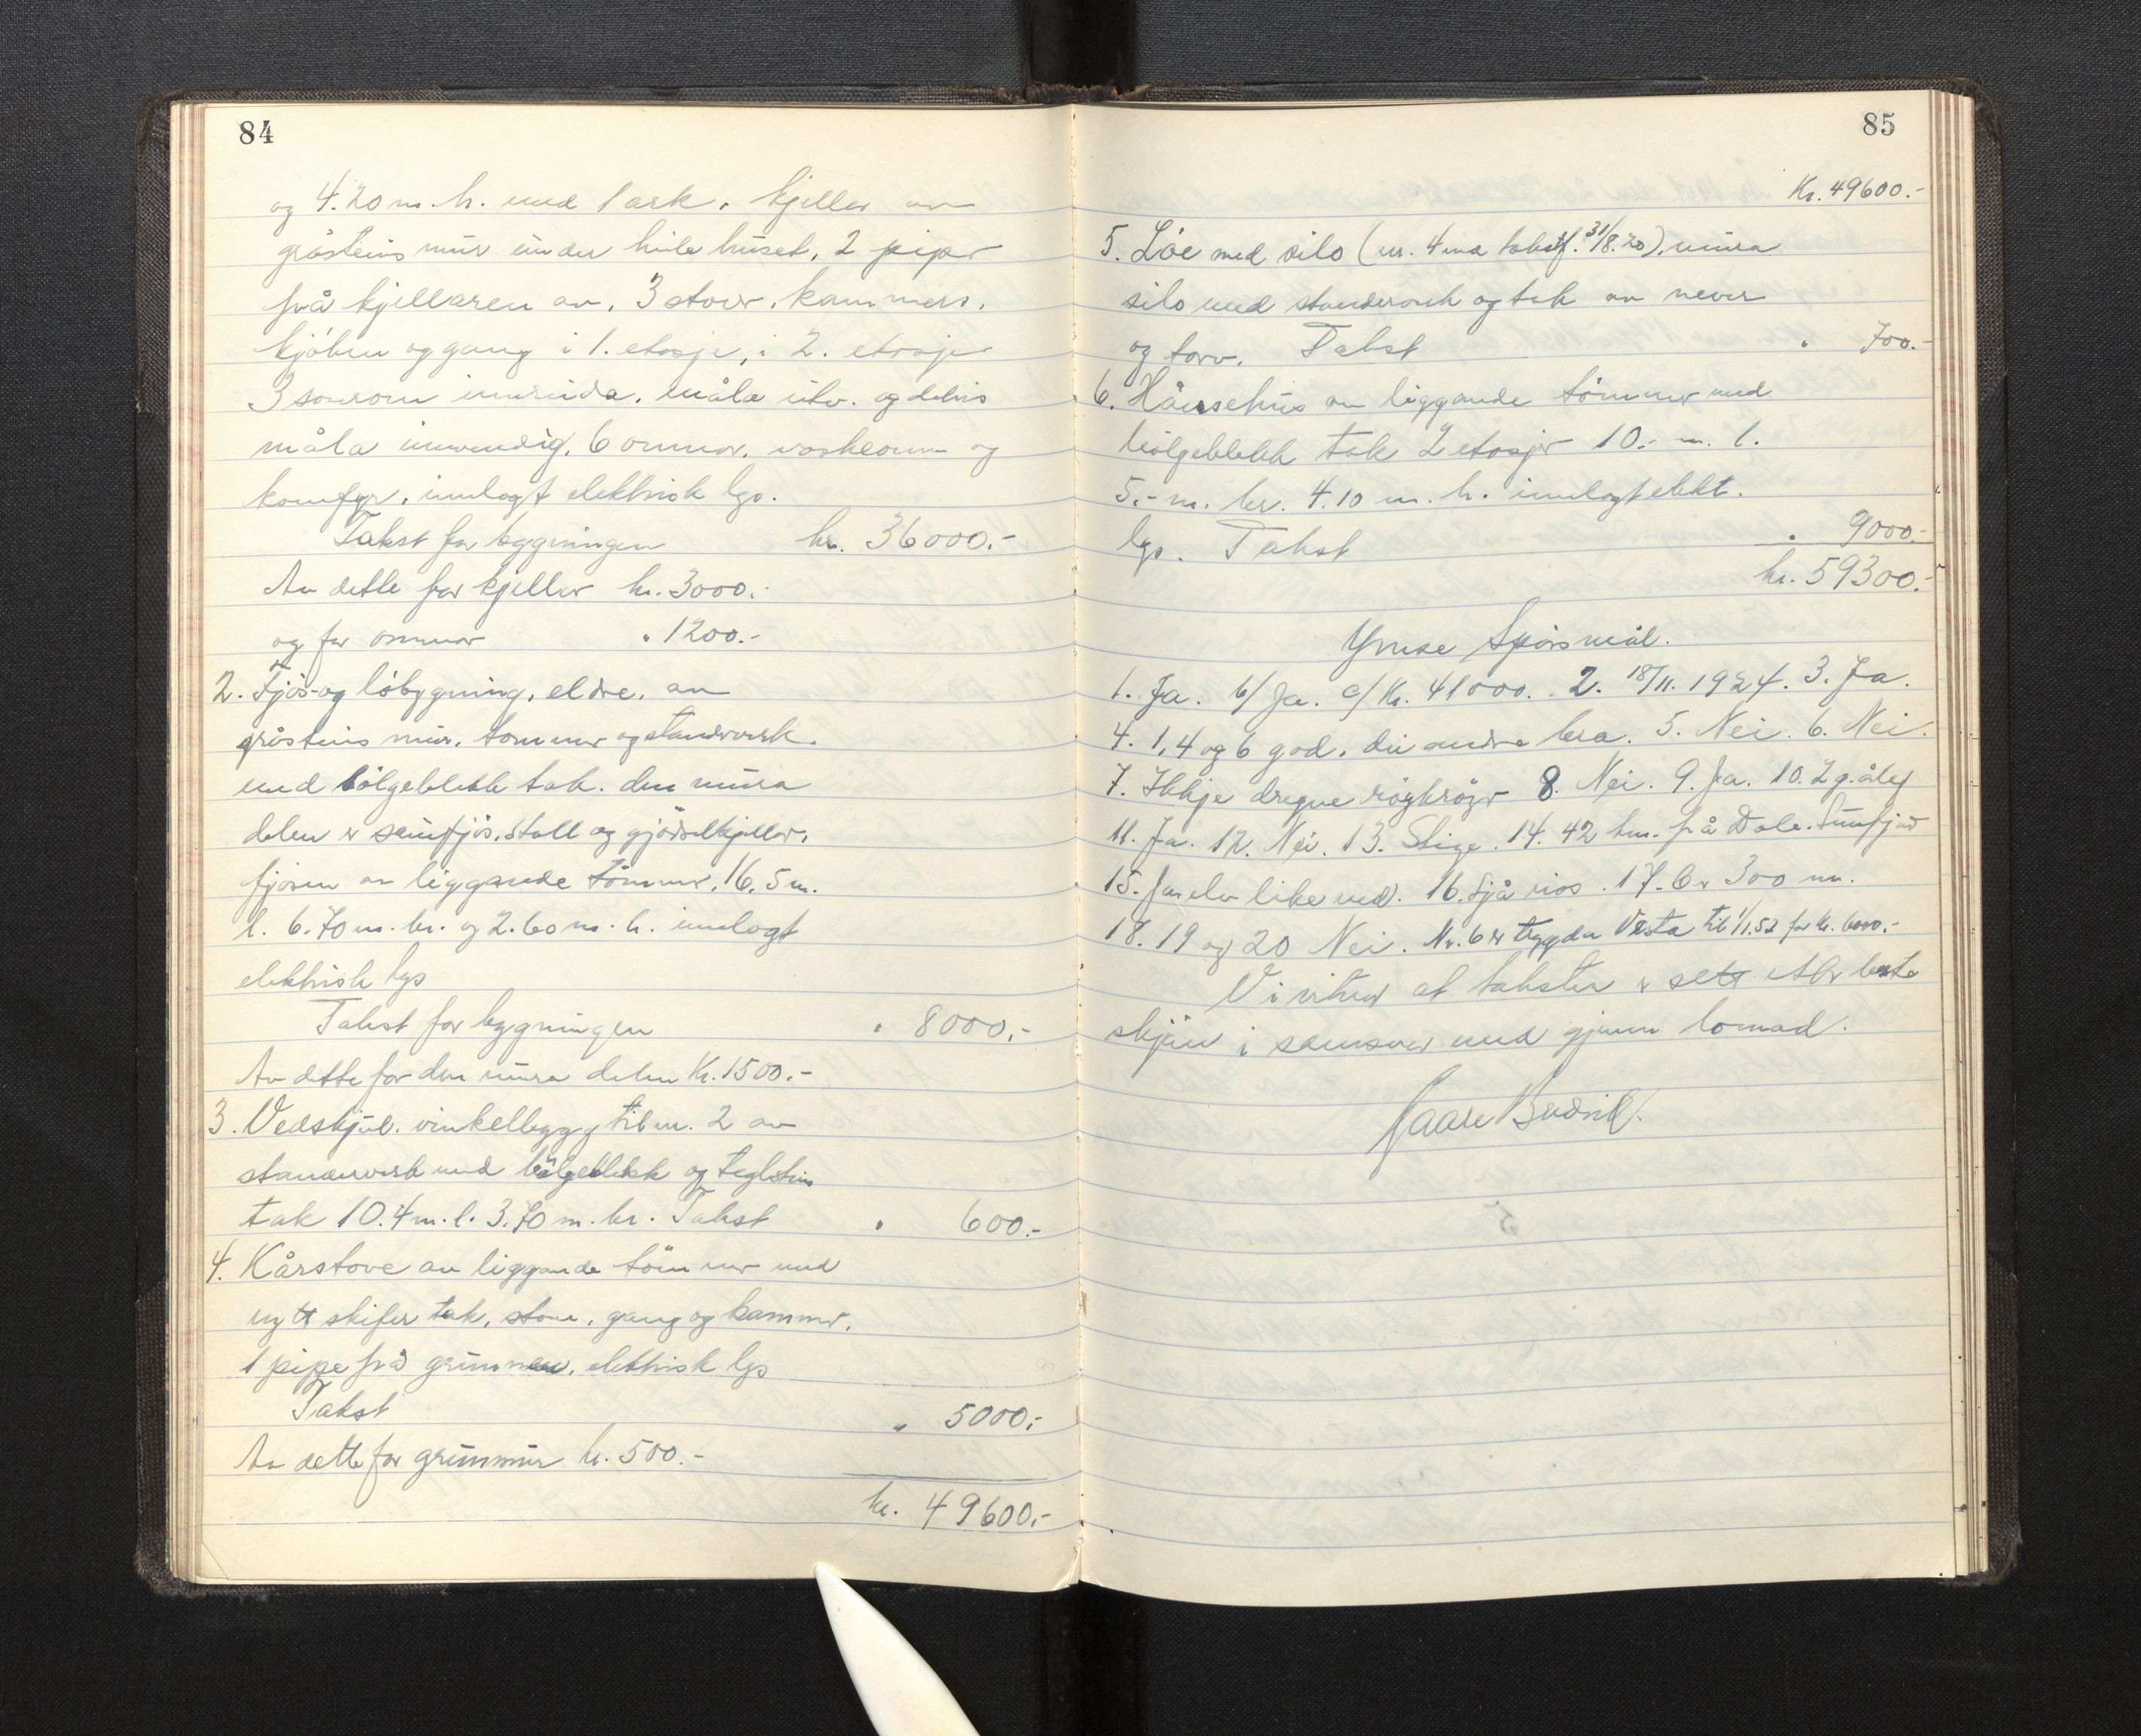 84
og 4.20 m. h. med 1 ark. kjeller av
gråsteins mur under heile huset, 2 piper
frå kjellaren av, 3 stover, kammers,
kjøken og gang i 1. etasje, i 2. etasje
3 soverom innreida. måla utv. og delvis
måla innvendig, 6 omnar, vaskeomn og
komfyr, innlagt elektrisk lys.
Takst for bygningen kr. 36000.-
Av dette for kjeller kr. 3000.-
og for omnar " 1200.-
2. Fjøs- og løbygning, eldre, av
gråsteins mur, tømmer og standverk.
med bølgeblekk tak. den mura
delen er saufjøs, stall og gjødselkjeller,
fjøsen av liggande tømmer, 16.5 m.
l. 6.70 m. br. og 2.60 m. h. innlagt
elektrisk lys
Takst for bygningen " 8000.-
Av dette for den mura delen Kr. 1500.-
3. Vedskjul. vinkelbygg til nr. 2 av
standverk med bølgeblekk og teglstein
tak 10.4 m. l. 3.70 m. br. Takst " 600.-
4. Kårstove av liggande tømmer med
nytt skifer tak, stove, gang og kammer,
1 pipe frå grunnen, elektrisk lys
Takst " 5000.-
Av dette for grunnmur kr. 500.-
kr. 49600.-
85
Kr. 49600.-
5. Löe med silo (nr. 4 ved takstf. 31/8.20), mura
silo med standverk og tak av never
og torv. Takst " 700.-
6. Hønsehus av liggande tømmer med
bølgeblekk tak 2 etasjer 10.- m. l.
5.- m. br. 4.10 m. h. innlagt elekt.
lys. Takst " 9000.-
kr. 59300.-
Ymse Spörsmål.
1. Ja. b/ Ja. c/ Kr. 41000. 2. 18/11. 1924. 3. Ja.
4. 1, 4 og 6 god, dei andre bra. 5. Nei. 6. Nei.
7. Ikkje dregne 8. Nei. 9. Ja. 10. 2 g. årleg
11. Ja. 12. Nei. 13. Stige. 14. 42 km. frå Dale. Sunnfjord
15. Ja elv like ved. 16. Sjå riss. 17. 6 er 300 m.
18. 19 og 20 Nei. Nr. 6 er trygda Vesta til 1/1.52 for kr. 6000.-
Vi vitnar at taksten er sett etter beste
skjön i samsvar med gjevne lovnad.
Kaare